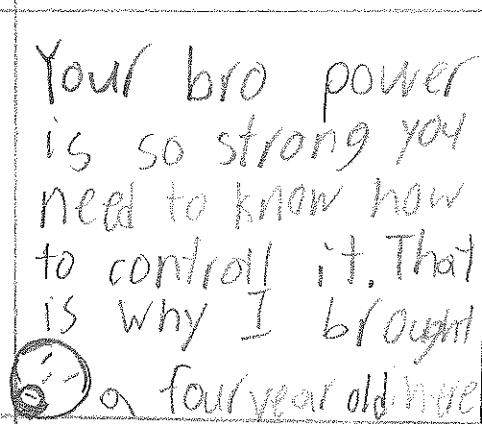 Your bro power
is so strong you
need to know how
to controll it. That
is why I brought
a four year old here